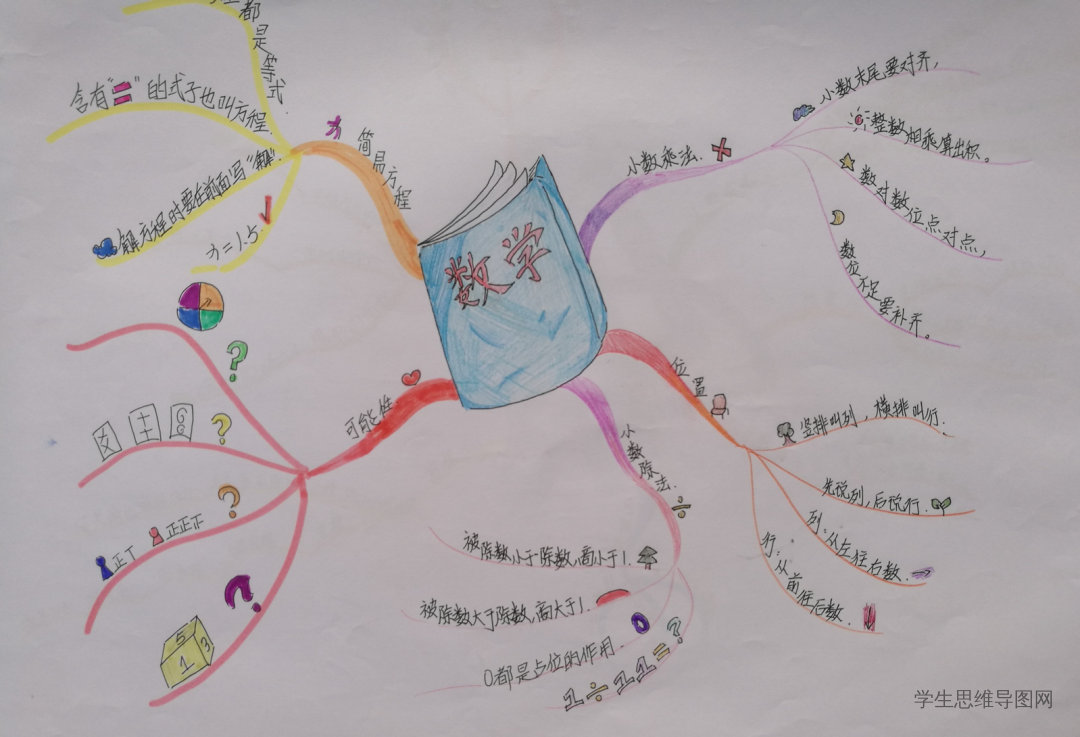 数学
简易方程
都是等式.
含有"="的式子也叫方程.
解方程时要在前面写"解".
x=1.5.
小数乘法.
小数末尾要对齐,
整数相乘算出积。
数对数位点对点,
数位不足要补齐。
位置
竖排叫列,横排叫行.
先说列,后说行.
列:从左往右数.
行:从前往后数.
小数除法.
÷
被除数小于除数,商小于1.
被除数大于除数,商大于1.
0都是占位的作用.
1÷11=?
可能性
?
?
?
正正正
?
5
1
3
学生思维导图网